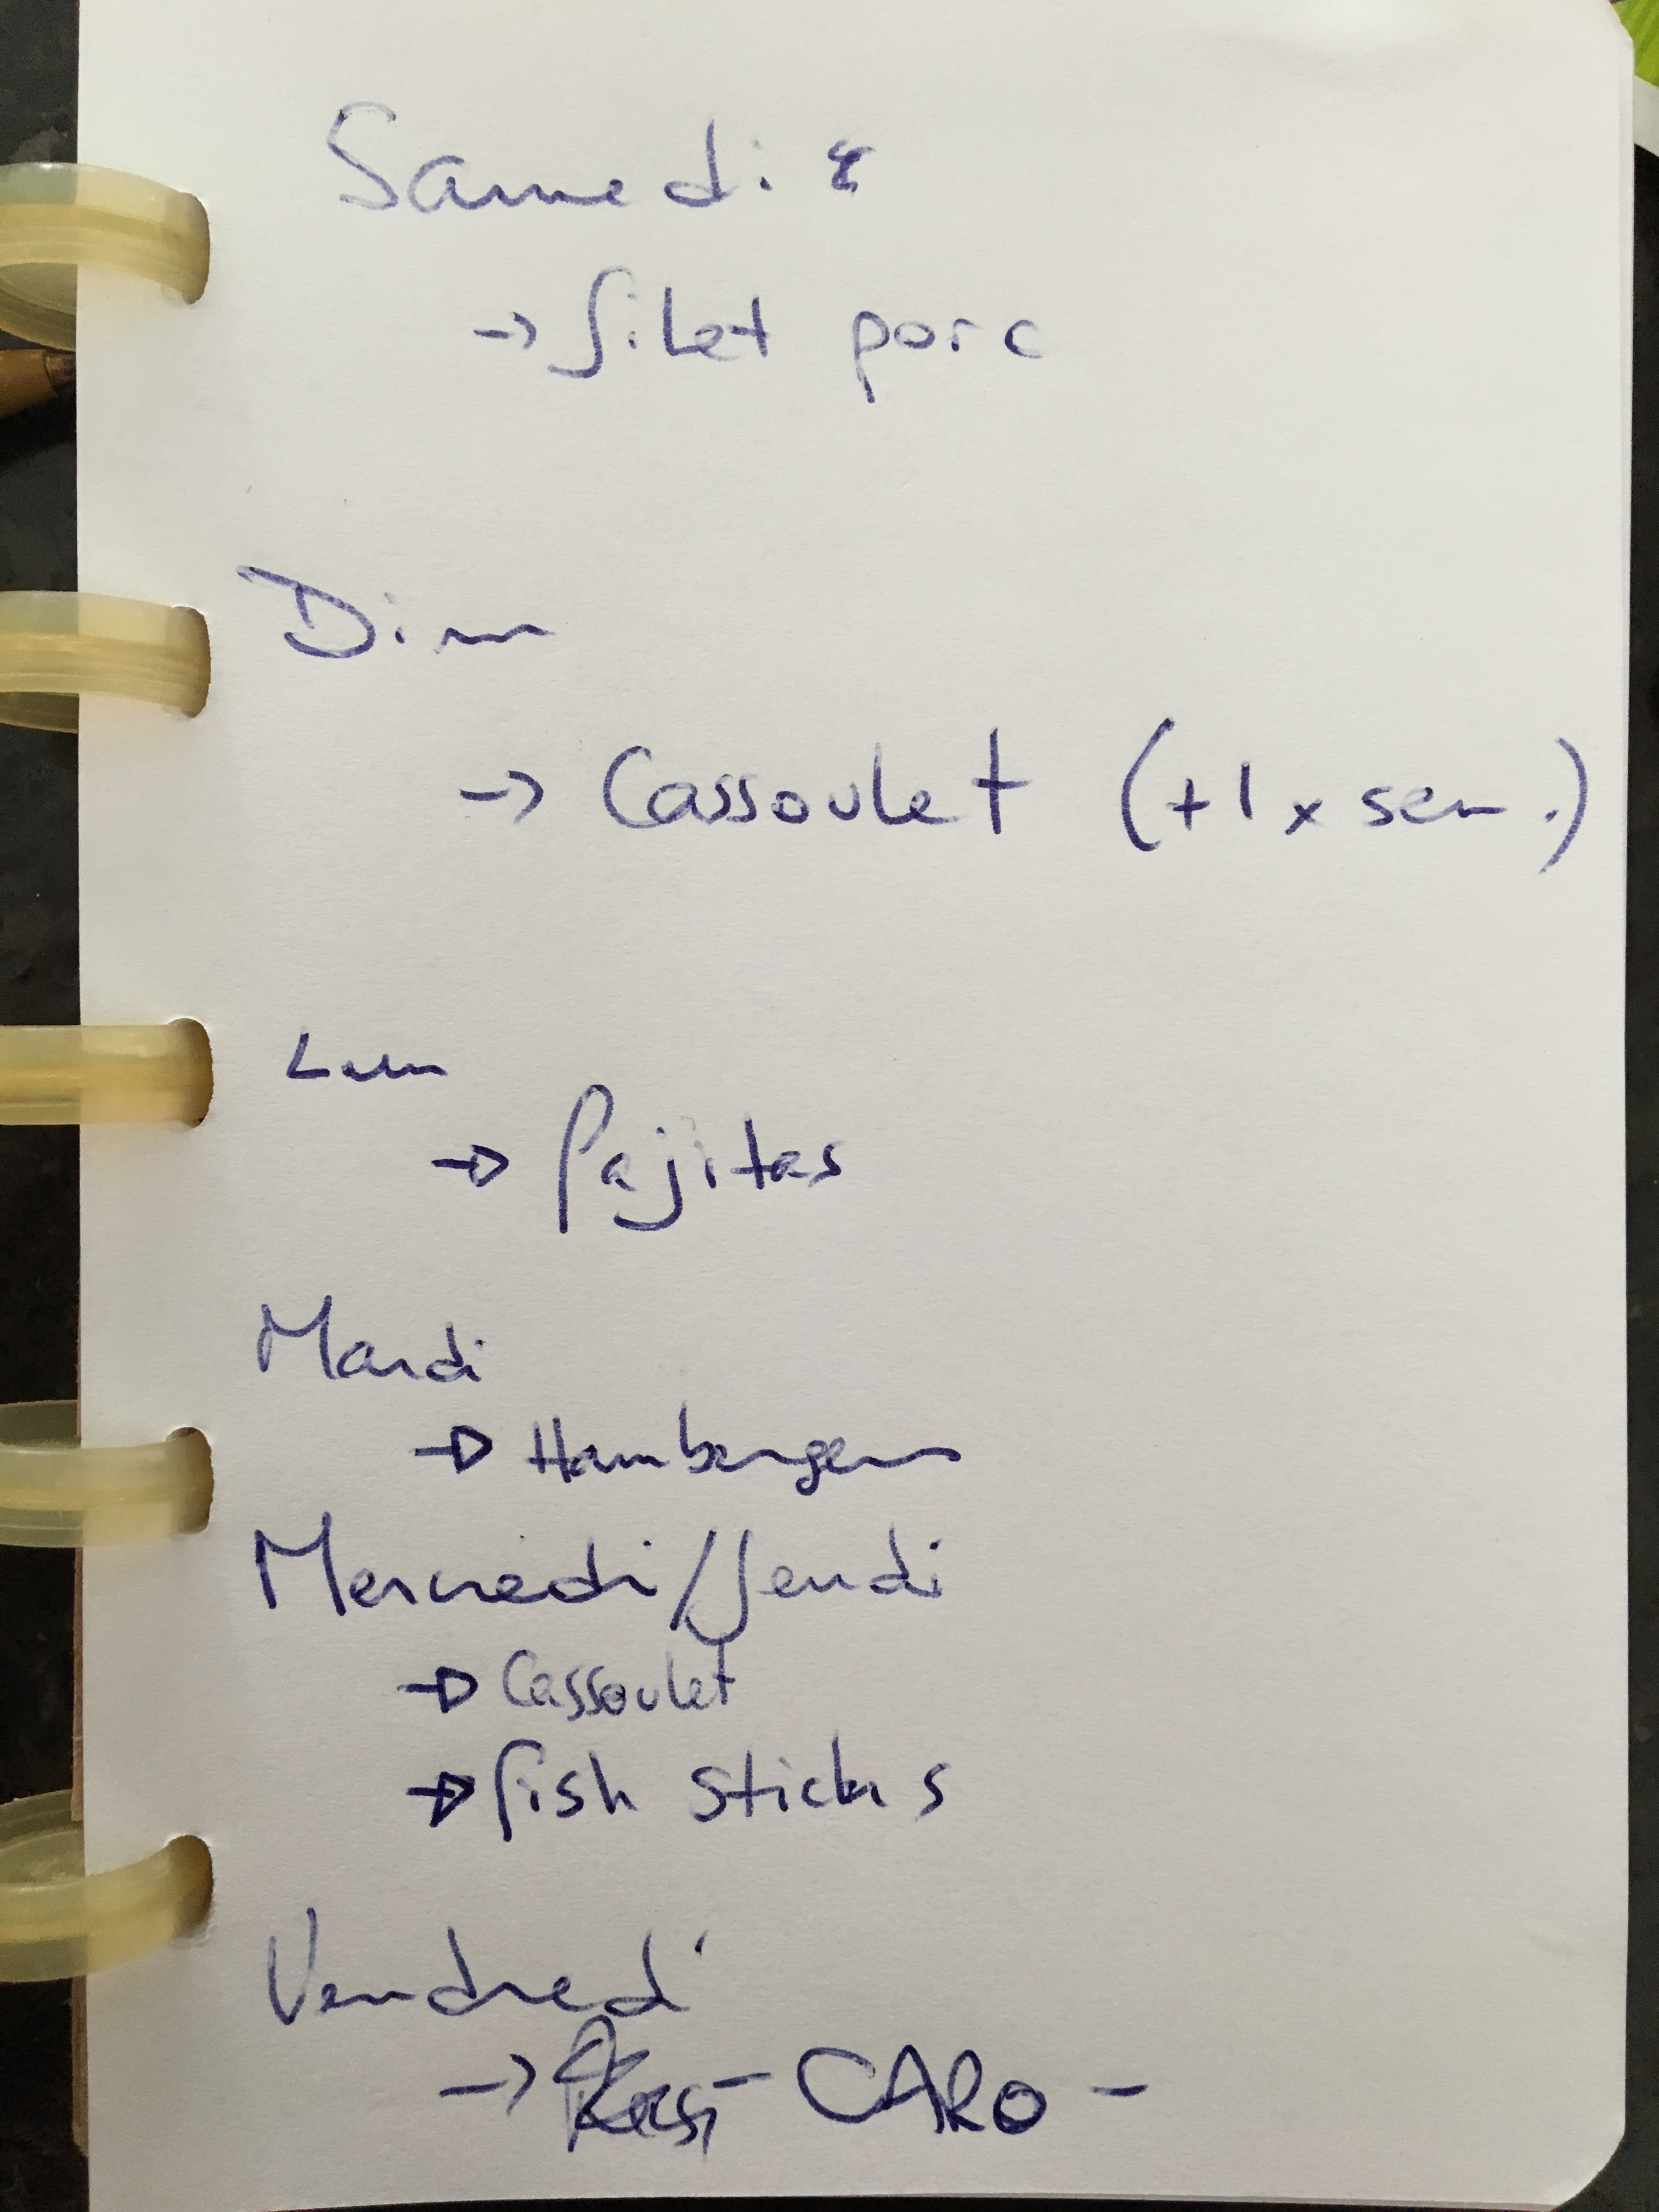 Samedi 8
→ filet porc
Dim
→ Cassoulet (+1x sem.)
Lun
→ Pajitas
Mardi
→ Hamburgers
Mercredi/Jeudi
→ Cassoulet
→ fish sticks
Vendredi
→ - CARO -